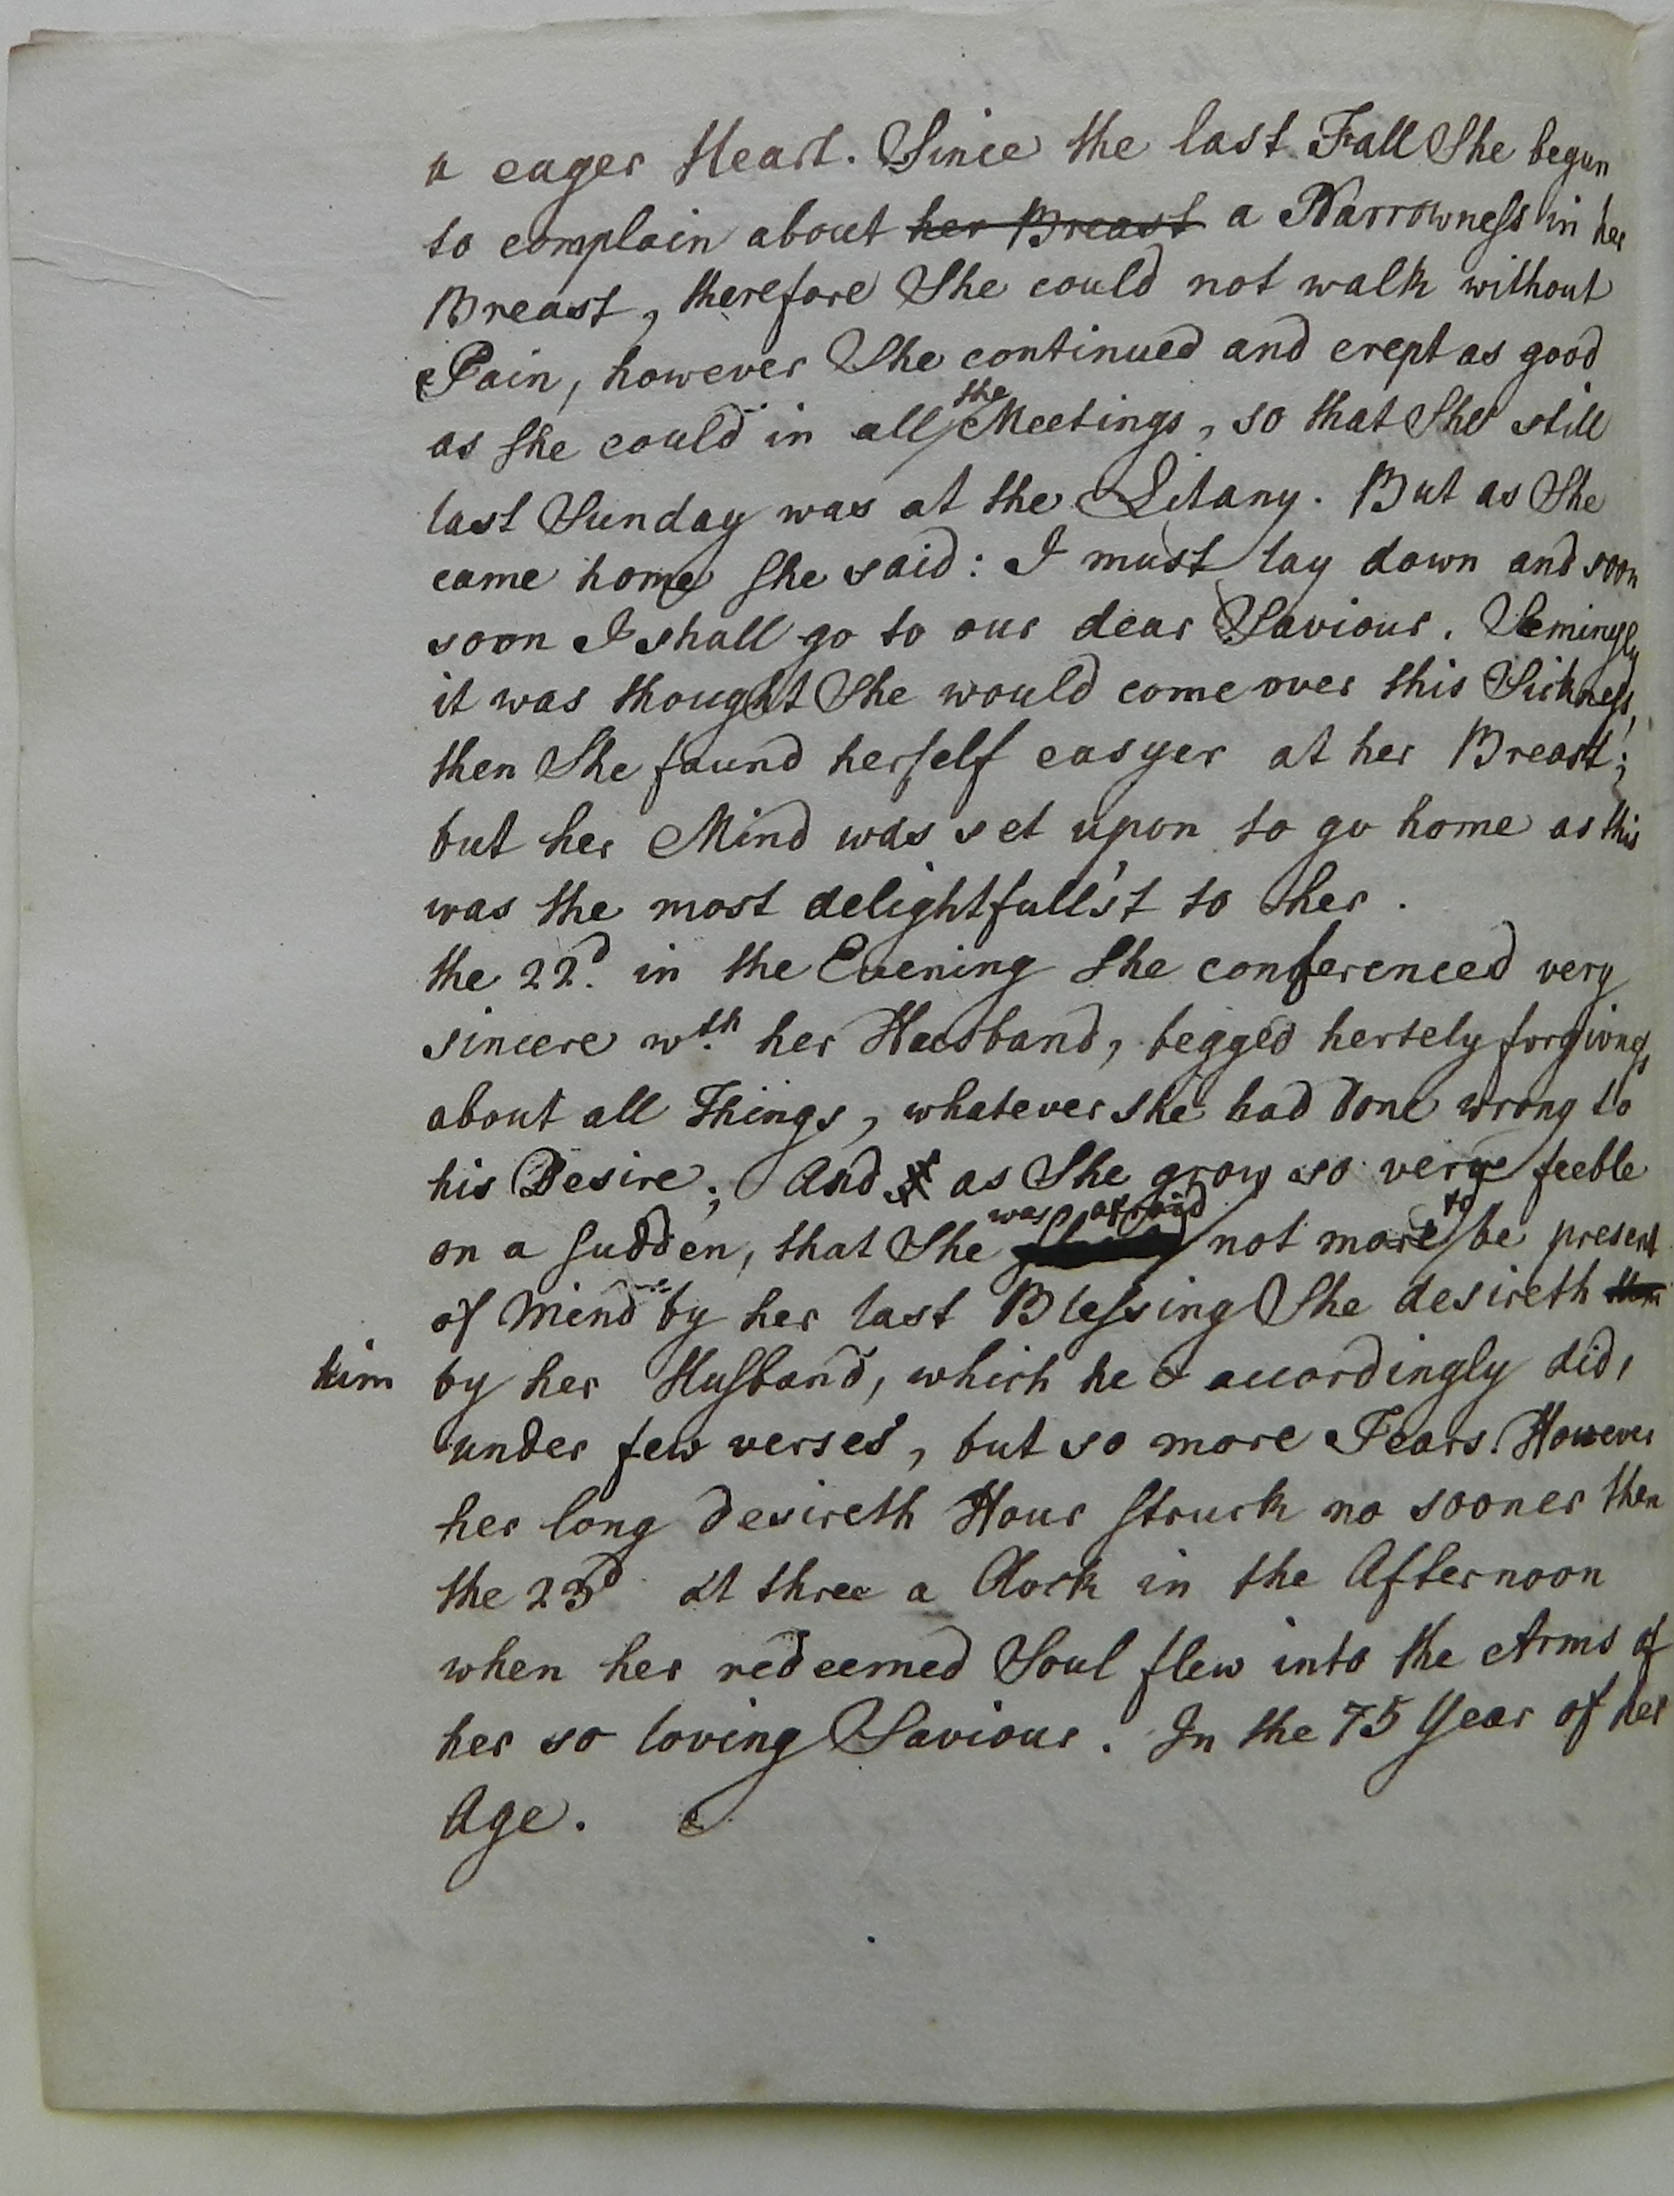 a eager Heart. Since the last Fall She begun
to complain about her Breast a Narrowness in her
Breast, therefore She could not walk without
Pain, however She continued and crept as good
as she could in all the Meetings, so that She still
last Sunday was at the Litany. But as She
came home she said: I must lay down and soon
soon I shall go to our dear Saviour. Semingly
it was thought She would come over this Sickness,
then She found herself easyer at her Breast;
but her Mind was set upon to go home as this
was the most delightfull'st to her.
the 22d. in the Evening She conferenced very
sincere wth. her Husband, begged hertely forgivng
about all Things, whatever she had done wrong to
his Desire; And as She grow so very feeble
on a sudden, that She was afraid not more to be present
of Mind by her last Blessing She desireth
him by her Husband, which he accordingly did,
under few verses, but so more Tears. However
her long desireth Hour struck no sooner then
the 23d at three a Clock in the Afternoon
when her redeemed Soul flew into the Arms of
her so loving Saviour. In the 75 Year of her
Age.